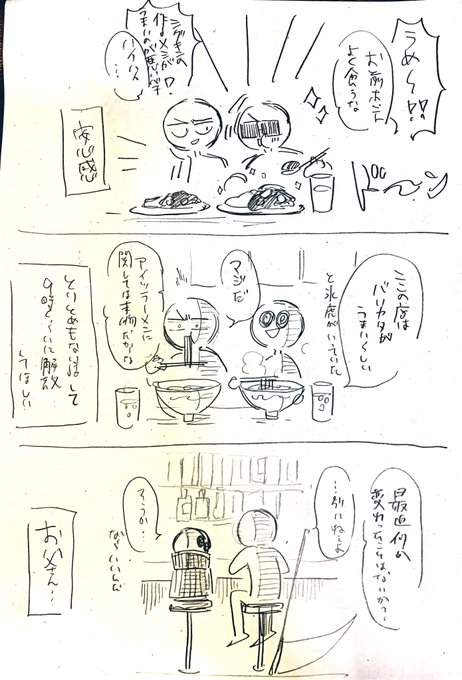 うめ〜!!
お前ホント
よく食うな
シゲキンの
作るメシが
うまいのが悪いんです!
ハイハイ
…
ドーン
安心感
ここの店は
バリカタが
うまいらしい
と氷虎がいていた
マジだ
アイツラーメンに
関しては本物だからな
とりとめもない話して
9時くらいに解散
してほしい
最近何か
変わったことはないか?…
…別にねぇよ
そうか…
ならいいんだ
お父さん…